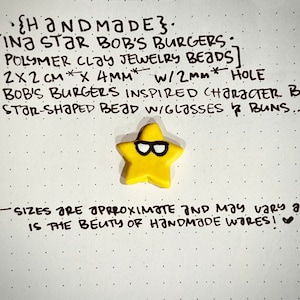 ·{HANDMADE}·
INA STAR BOB'S BURGERS·
POLYMER CLAY JEWELRY BEADS]
2X2CM* X 4MM* W/2MM* HOLE
BOB'S BURGERS INSPIRED CHARACTER B
STAR-SHAPED BEAD W/GLASSES & BUNS...
—SIZES ARE APPROXIMATE AND MAY VARY A
IS THE BEUTY OF HANDMADE WARES! ♥